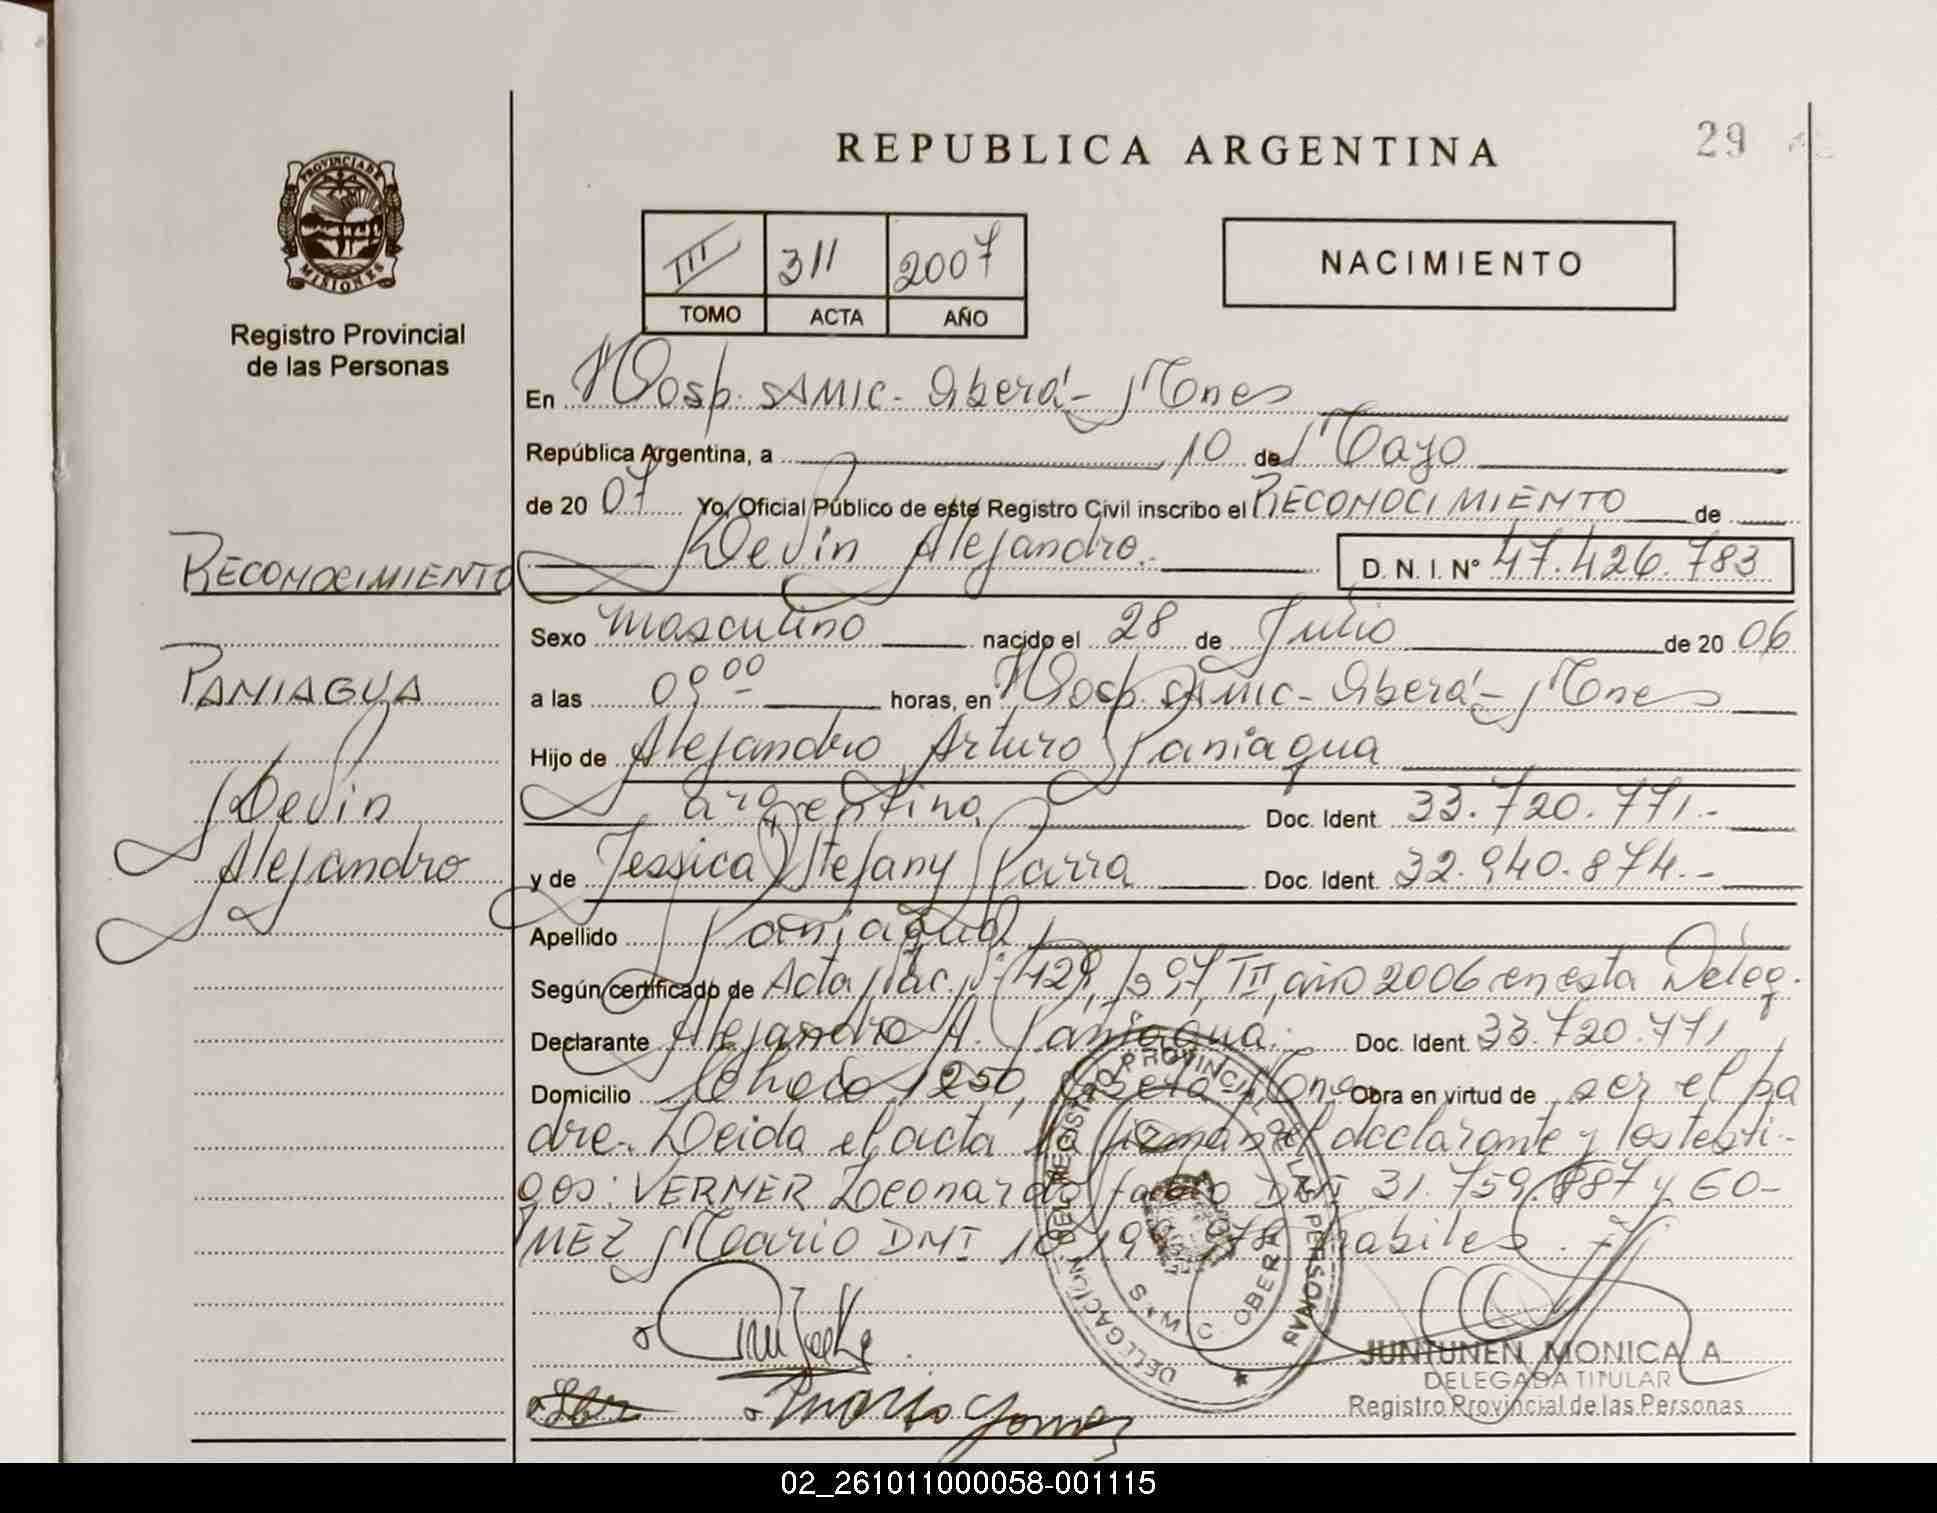 REPUBLICA ARGENTINA
29
PROVINCIA DE MISIONES
Registro Provincial
de las Personas
III 311 2007
TOMO ACTA AÑO
NACIMIENTO
En Hosp. SAMIC - Oberá - Mnes
República Argentina, a 10 de Mayo
de 2007 Yo, Oficial Público de este Registro Civil inscribo el RECONOCIMIENTO de
Kevin Alejandro. D. N. I. N° 47.426.783
RECONOCIMIENTO
PANIAGUA
Kevin
Alejandro
Sexo masculino nacido el 28 de Julio de 2006
a las 09 00 horas, en Hosp. SAMIC - Oberá - Mnes
Hijo de Alejandro Arturo Paniagua
argentino Doc. Ident. 33.720.771.-
y de Jessica Stefany Parra Doc. Ident. 32.940.874.-
Apellido Paniagua
Según certificado de Acta Nac. N° 429, III, año 2006 en esta Deleg.
Declarante Alejandro A. Paniagua. Doc. Ident. 33.720.771
Domicilio Chaco 1250, Oberá Mnes Obra en virtud de ser el pa
dre. Leida el acta la firman el declarante y los testi-
gos: VERNER Leonardo DNI 31.759. 887 y GO-
MEZ Mario DNI habiles.
DELEGACIÓN DEL REGISTRO PROVINCIAL DE LAS PERSONAS
OBERA
Mario Gomez
JUNTUNEN MONICA A.
DELEGADA TITULAR
Registro Provincial de las Personas
02_261011000058-001115